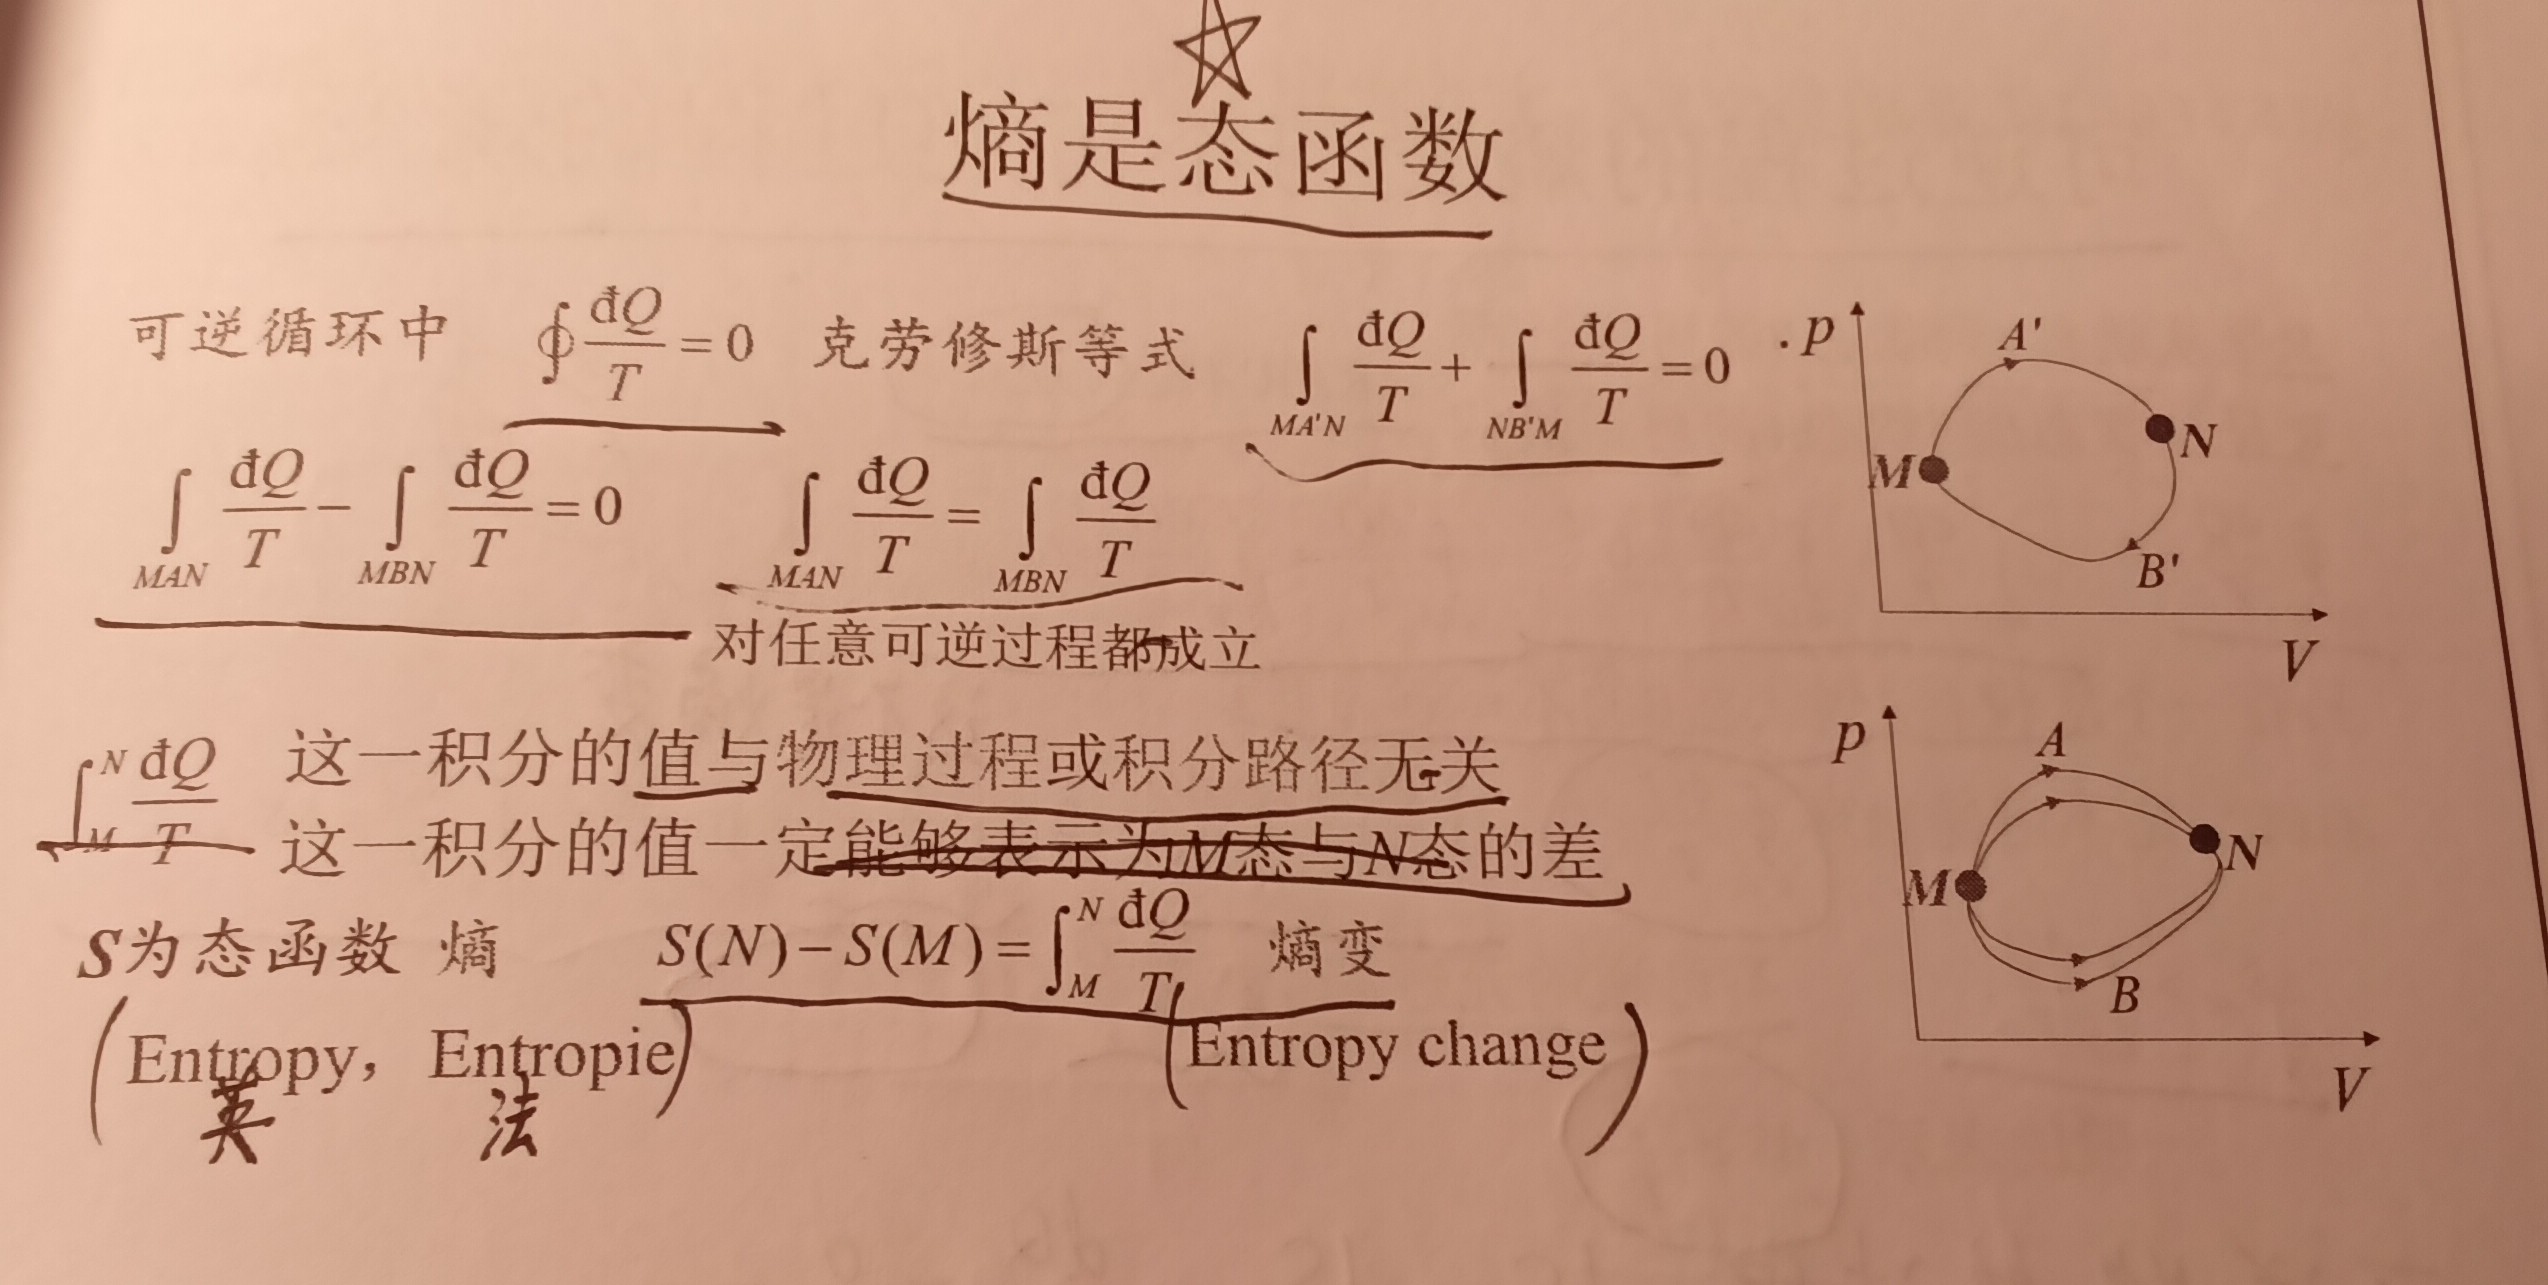 熵是态函数
可逆循环中 ∮đQ/T=0 克劳修斯等式 ∫MA'N đQ/T + ∫NB'M đQ/T = 0
∫MAN đQ/T − ∫MBN đQ/T = 0 ∫MAN đQ/T = ∫MBN đQ/T
对任意可逆过程都成立
∫M^N đQ/T 这一积分的值与物理过程或积分路径无关
这一积分的值一定能够表示为M态与N态的差
S为态函数 熵 S(N)−S(M)=∫M^N đQ/T 熵变
(Entropy, Entropie) (Entropy change)
英 法
p
A'
N
M
B'
V
p
A
N
M
B
V